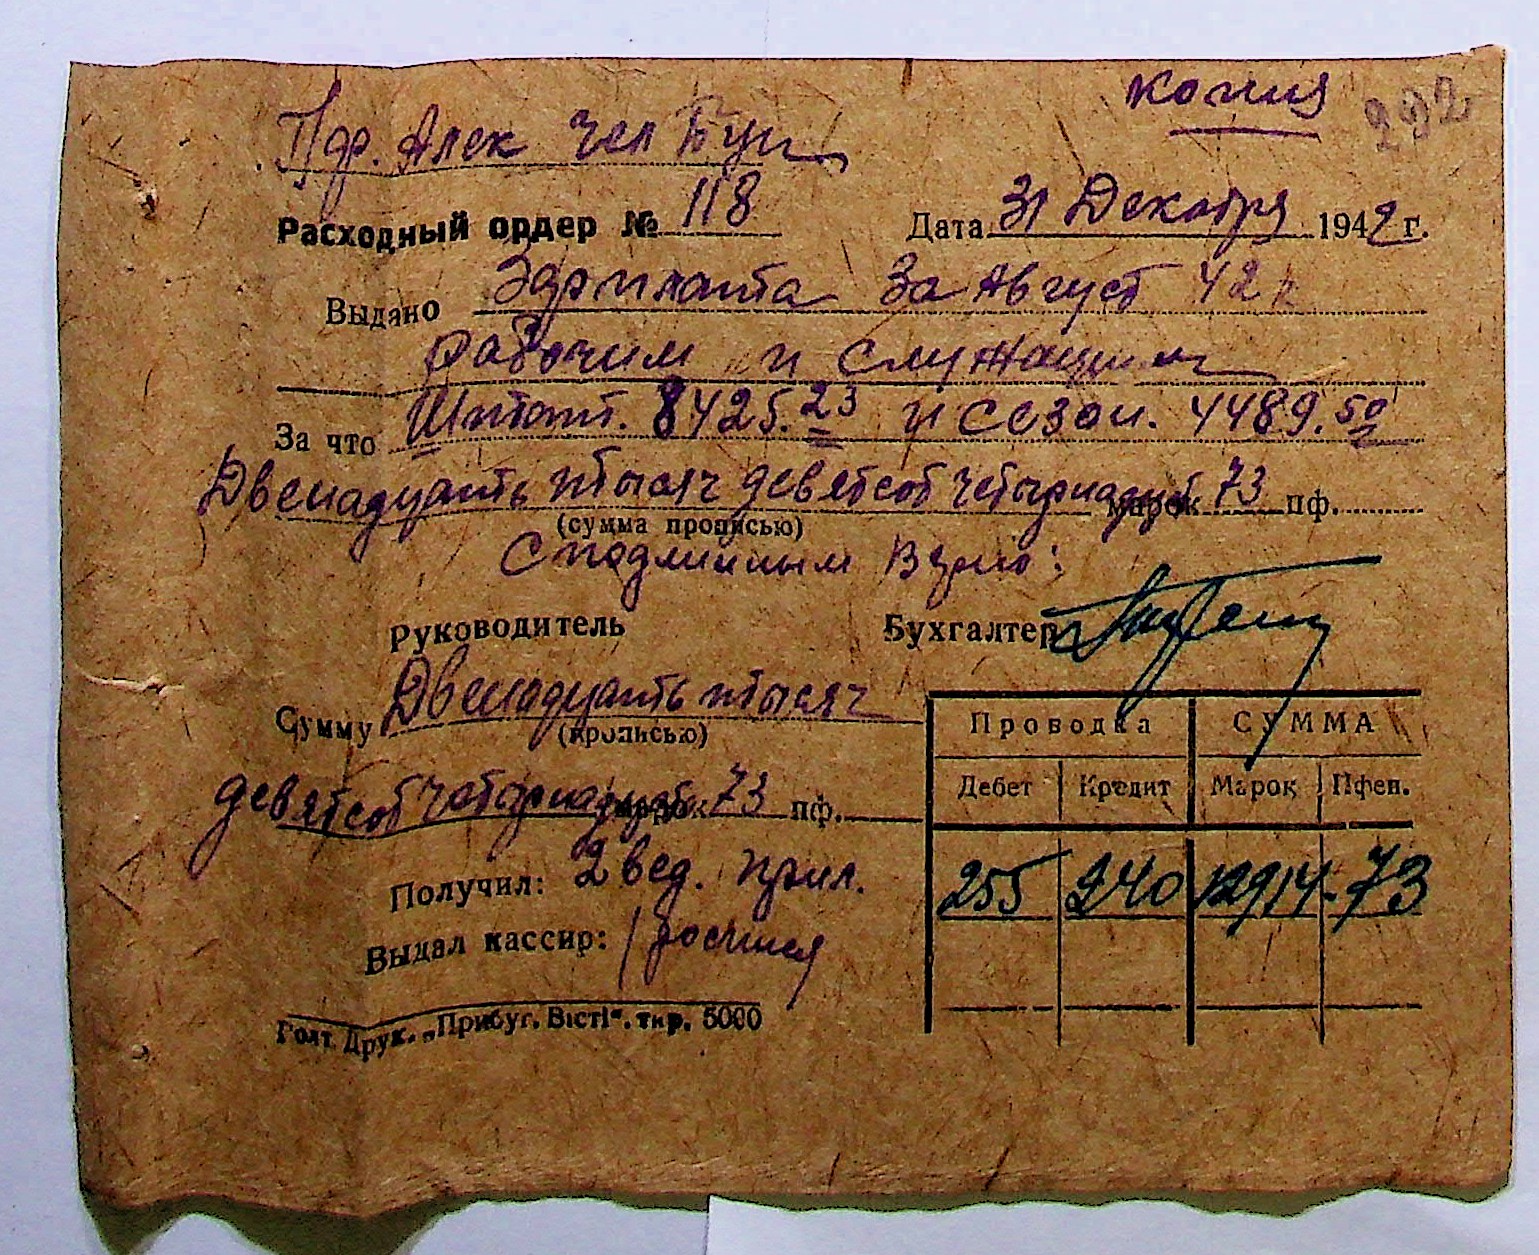 Копия
292
Пдр. Алек чел Буг
Расходный ордер № 118 Дата 31 Декабря 1942 г.
Выдано Зарплата За Август 42 г
рабочим и служащим
За что Штат. 8425.23 и сезон. 4489.50
Двенадцать тысяч девятсот четырнадцат марок 73 пф.
(сумма прописью)
С подлинным Верно:
Руководитель Бухгалтер
Сумму Двенадцать тысяч
(прописью)
девятсот четырнадцать марок 73 пф.
Проводка СУММА
Дебет Кредит Марок Пфен.
255 240 12914 - 73
Получил: 2 вед. прил.
Выдал кассир: роспися
Голт. Друк. „Прибуг. Вісті“. тир. 5000